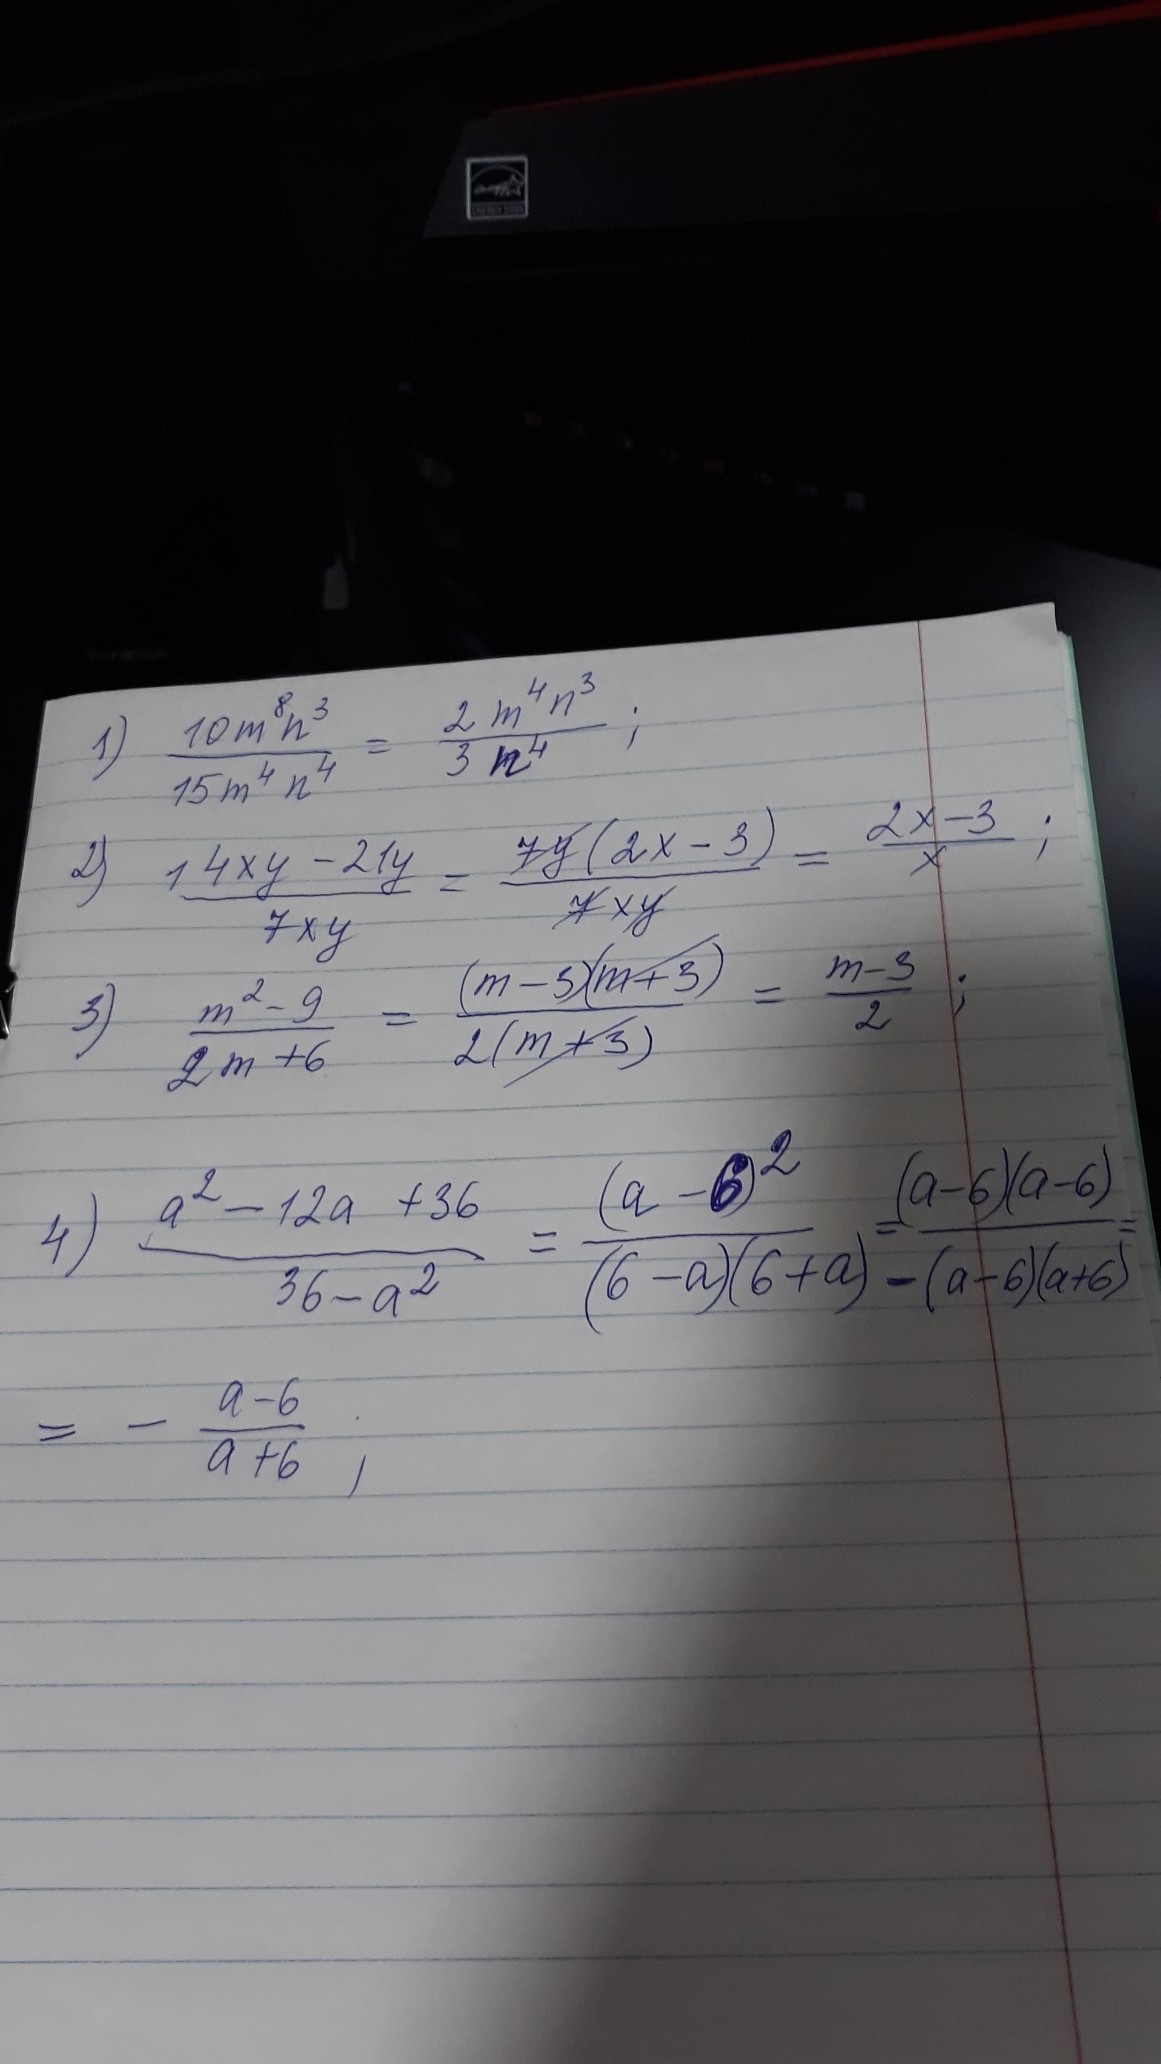 ENERGY STAR
1) 10m⁸n³ / 15m⁴n⁴ = 2m⁴n³ / 3n⁴ ;
2) 14xy - 21y / 7xy = 7y(2x - 3) / 7xy = 2x - 3 / x ;
3) m² - 9 / 2m + 6 = (m - 3)(m + 3) / 2(m + 3) = m - 3 / 2 ;
4) a² - 12a + 36 / 36 - a² = (a - 6)² / (6 - a)(6 + a) = (a - 6)(a - 6) / -(a - 6)(a + 6) =
= - a - 6 / a + 6 ;